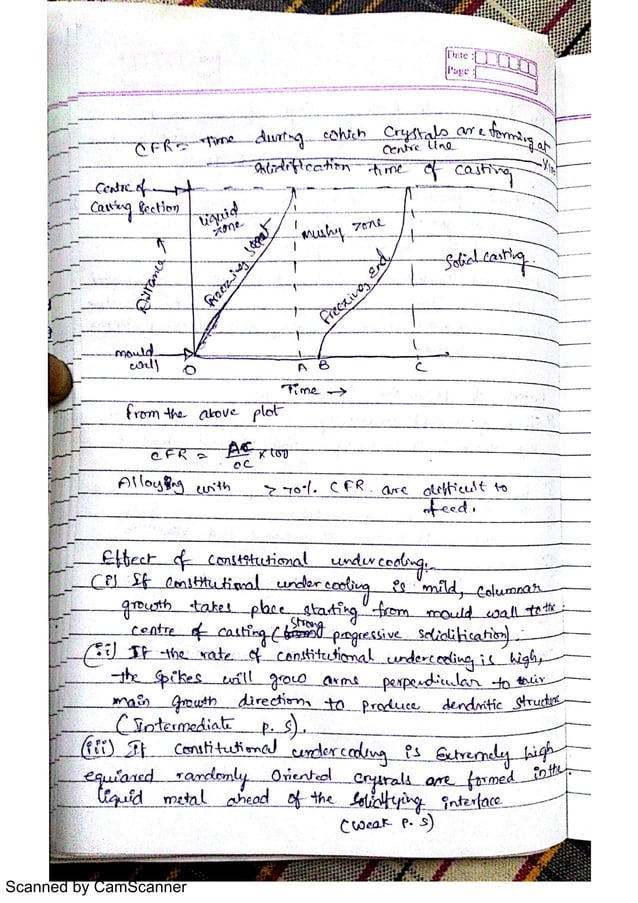 Date :
Page :
CFR = Time during which crystals are forming at centre line
Solidification time of casting
x100
Centre of casting section
liquid zone
mushy zone
Solid casting.
Distance →
Freezing start
Freezing end
mould wall
O
A
B
C
Time →
from the above plot
CFR = AC/OC x100
Alloying with >70%. CFR are difficult to feed.
Effect of constitutional undercooling.
(i) If constitutional undercooling is mild, columnar
growth takes place starting from mould wall to the
centre of casting (strong progressive solidification).
(ii) If the rate of constitutional undercooling is high,
the spikes will grow arms perpendicular to their
main growth direction, to produce dendritic structure
(Intermediate P.S).
(iii) If constitutional undercooling is Extremely high
equiaxed randomly oriented crystals are formed in the
liquid metal ahead of the solidifying interface
(weak P.S)
Scanned by CamScanner